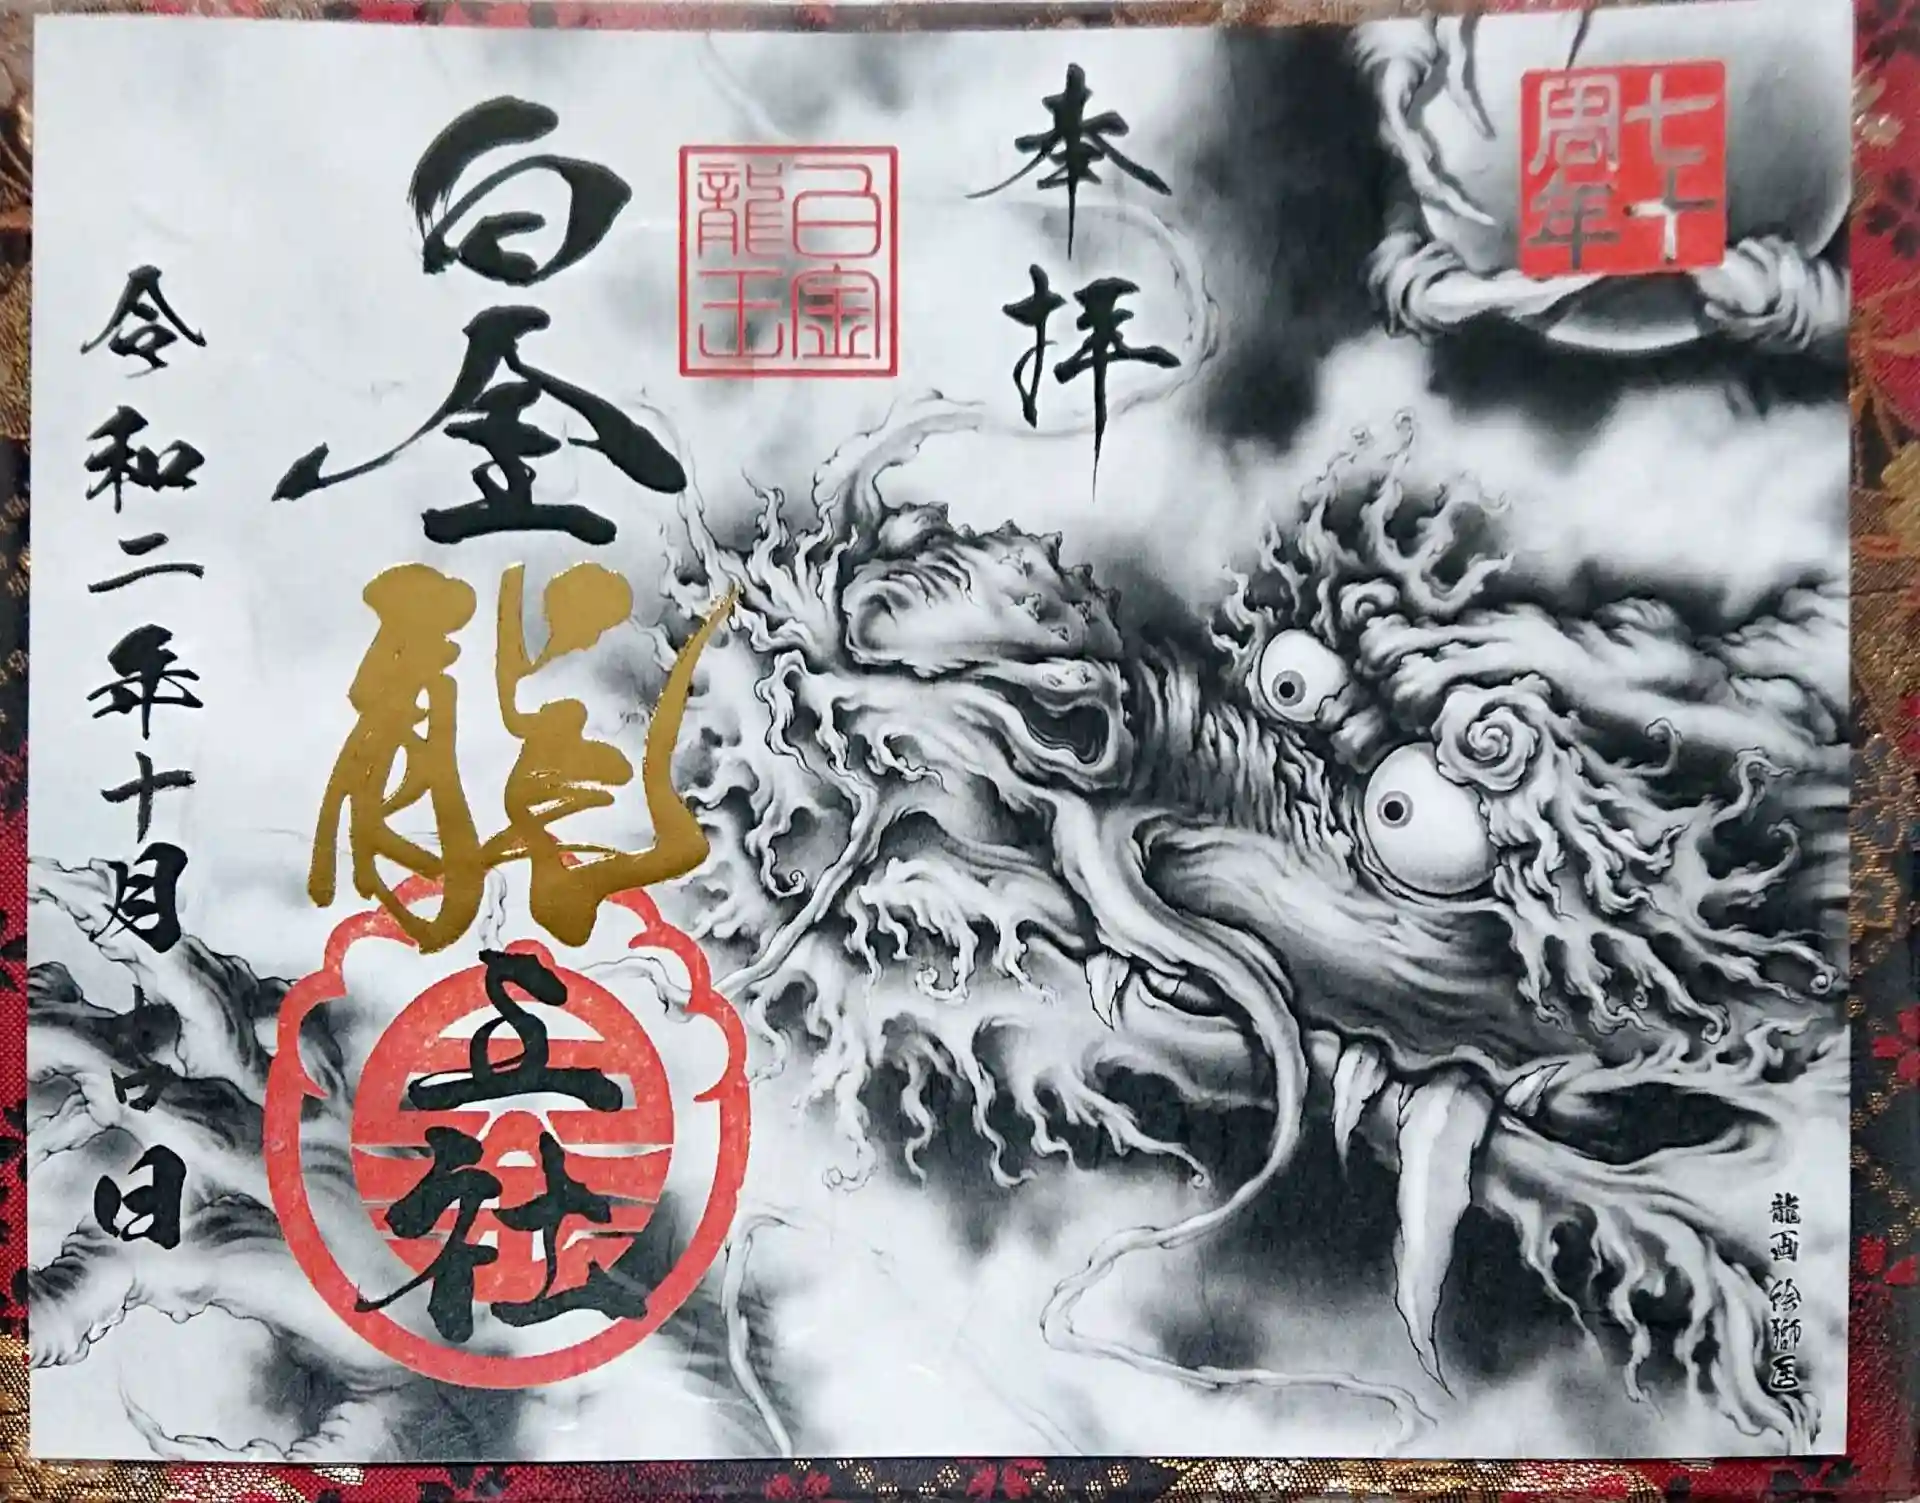 七十
周年
龍画 絵獅
奉拝
白金
龍王
白金龍王社
令和二年十月吉日